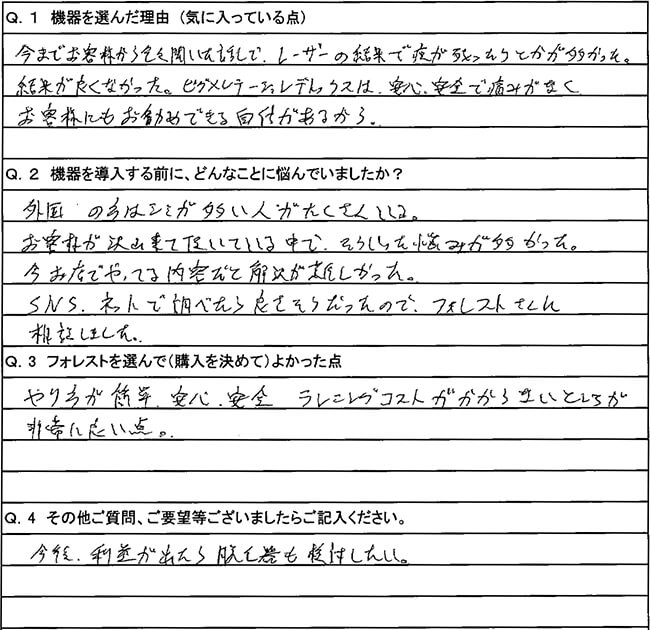 Q. 1 機器を選んだ理由（気に入っている点）
今までお客様から色々聞いた話しで、レーザーの結果で痕が残ったりとかが多かった。
結果が良くなかった。ピグメレデックスは、安心、安全で痛みがなく
お客様にもお勧めできる自信があるから。
Q. 2 機器を導入する前に、どんなことに悩んでいましたか？
外国の方はシミが多い人がたくさんいる。
お客様が沢山来て頂いている中で、そういった悩みが多かった。
今お店でやってる内容だと解決が難しかった。
SNS、ネットで調べたら良さそうだったので、フォレストさんに
相談しました。
Q. 3 フォレストを選んで（購入を決めて）よかった点
やり方が簡単、安心、安全 ランニングコストがかからないところが
非常に良い点。
Q. 4 その他ご質問、ご要望等ございましたらご記入ください。
今後、利益が出たら脱毛器も検討したい。